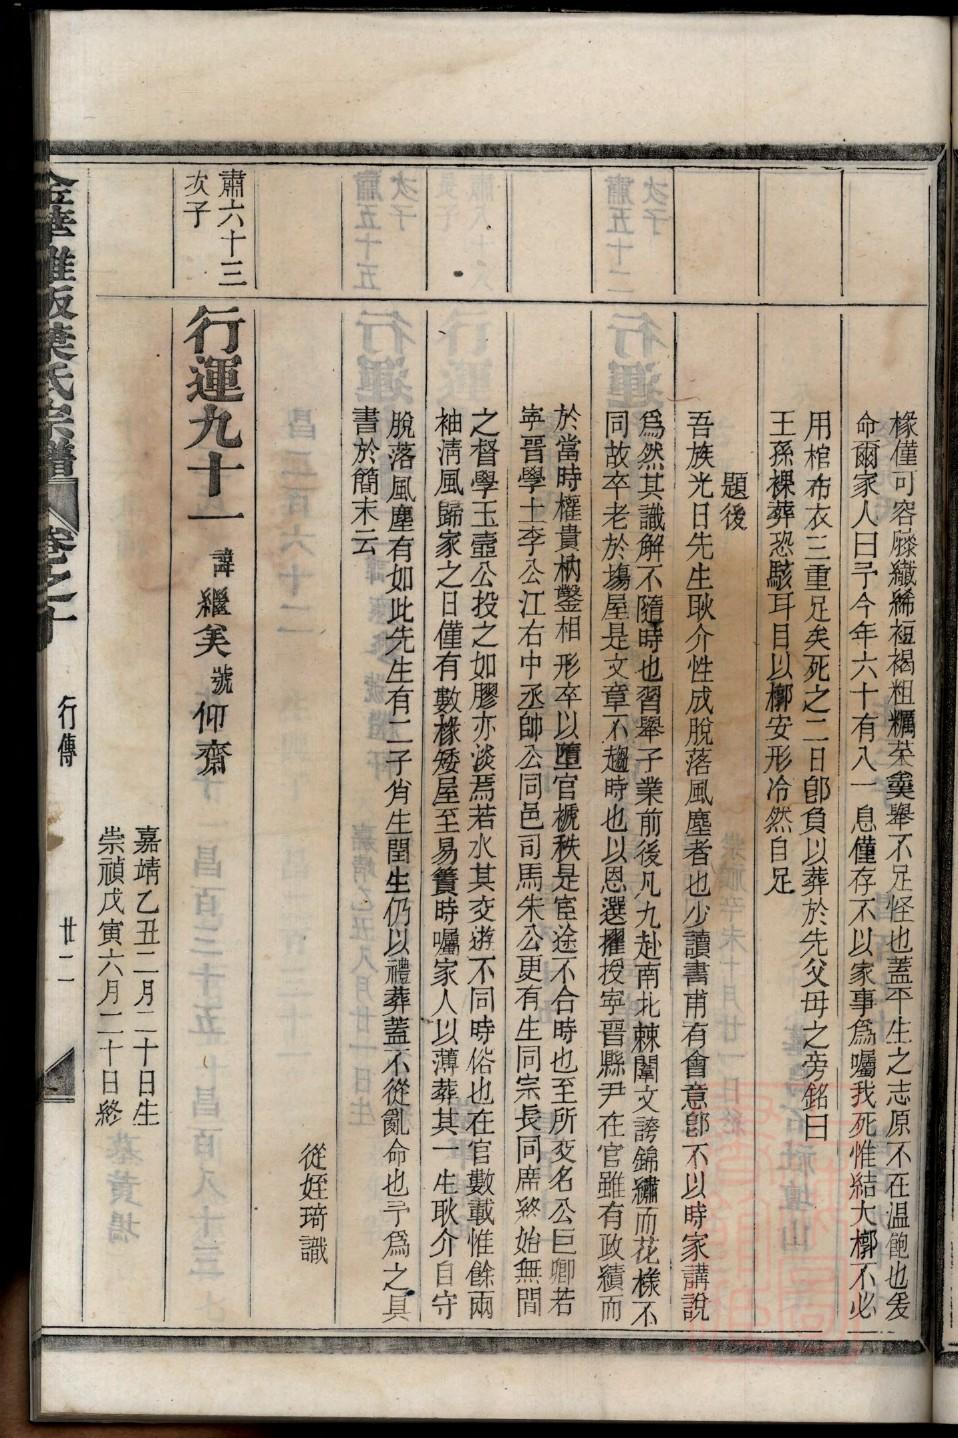 椽僅可容膝纖絺短褐粗糲茶羹舉不足怪也蓋平生之志原不在溫飽也爰
命爾家人曰予今年六十有八一息僅存不以家事爲囑我死惟結大槨不必
用棺布衣三重足矣死之二日卽負以葬於先父母之旁銘曰
王孫裸葬恐駭耳目以槨安形冷然自足
題後
吾族光日先生耿介性成脫落風塵者也少讀書甫有會意卽不以時家講說
爲然其識解不隨時也習舉子業前後凡九赴南北棘闈文誇錦繡而花樣不
同故卒老於塲屋是文章不趨時也以恩選擢授寕晉縣尹在官雖有政績而
於當時權貴枘鑿相形卒以墮官褫秩是宦途不合時也至所交名公巨卿若
寕晉學士李公江右中丞帥公同邑司馬朱公更有生同宗長同席終始無間
之督學玉壺公投之如膠亦淡焉若水其交遊不同時俗也在官數載惟餘兩
袖淸風歸家之日僅有數椽矮屋至易簀時囑家人以薄葬其一生耿介自守
脫落風塵有如此先生有二子肖生閏生仍以禮葬蓋不從亂命也予爲之具
書於簡末云
從姪琦識
肅六十三
次子
行運九十一 諱繼美號仰齋
嘉靖乙丑二月二十日生
崇禎戊寅六月二十日終
金華雅畈葉氏宗譜 卷之十 行傳 廿二